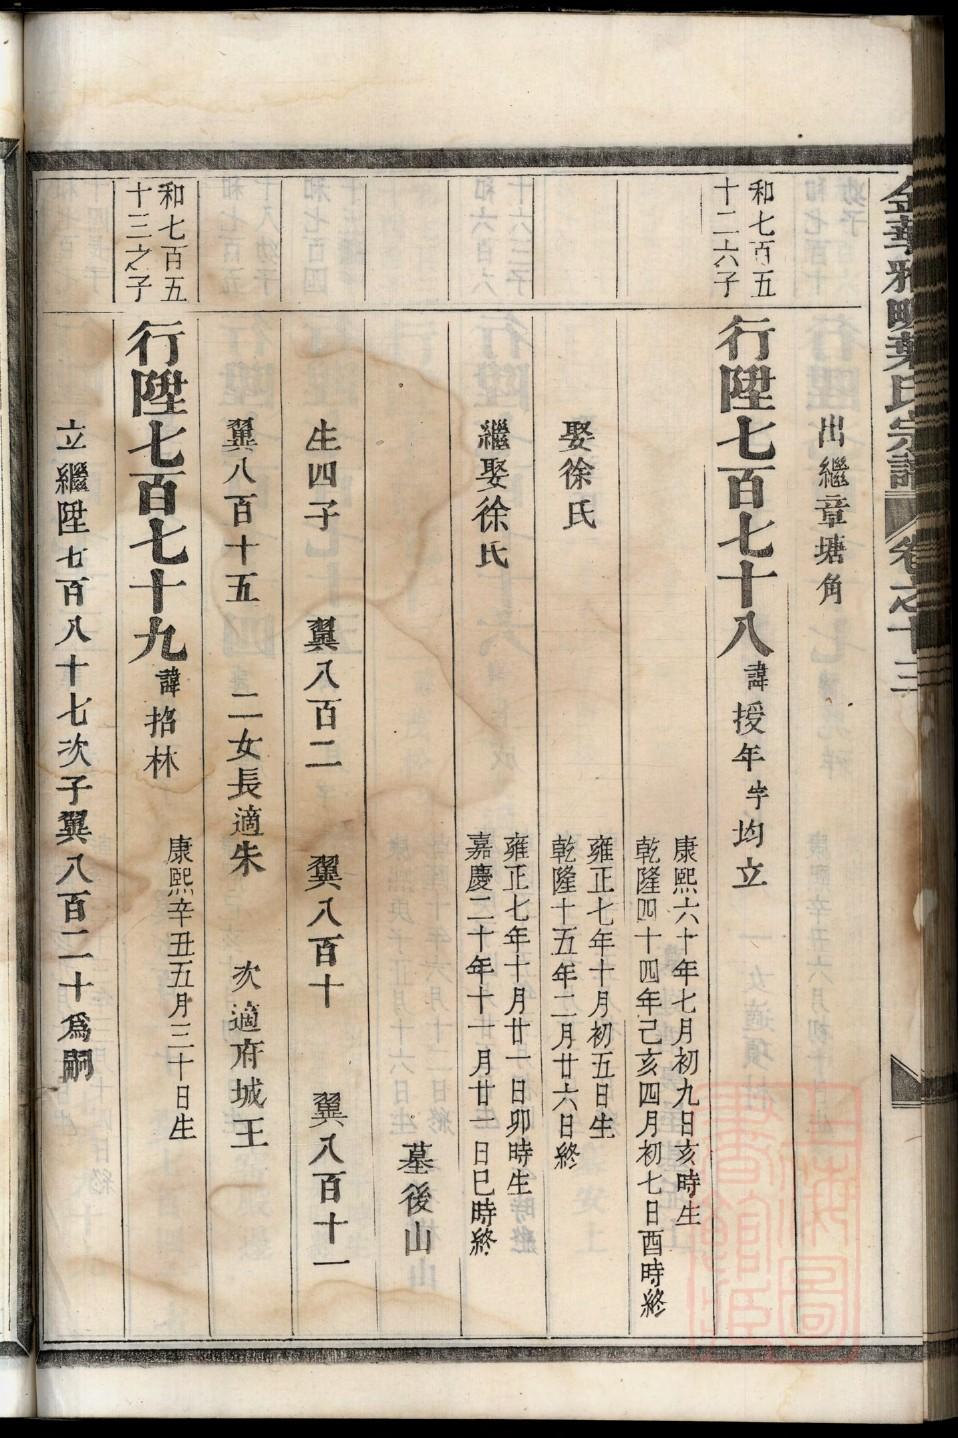 金華雅畈葉氏宗譜 卷之十三
出繼章塘角
和七百五
十二六子
行陞七百七十八 諱授年字均立
康熙六十年七月初九日亥時生
乾隆四十四年己亥四月初七日酉時終
娶徐氏
雍正七年十月初五日生
乾隆十五年二月廿六日終
繼娶徐氏
雍正七年十月廿一日卯時生
嘉慶二十年十一月廿一日巳時終
墓後山
生四子 翼八百二 翼八百十 翼八百十一
翼八百十五 二女長適朱 次適府城王
和七百五
十三之子
行陞七百七十九 諱招林
康熙辛丑五月三十日生
立繼陞七百八十七次子翼八百二十為嗣